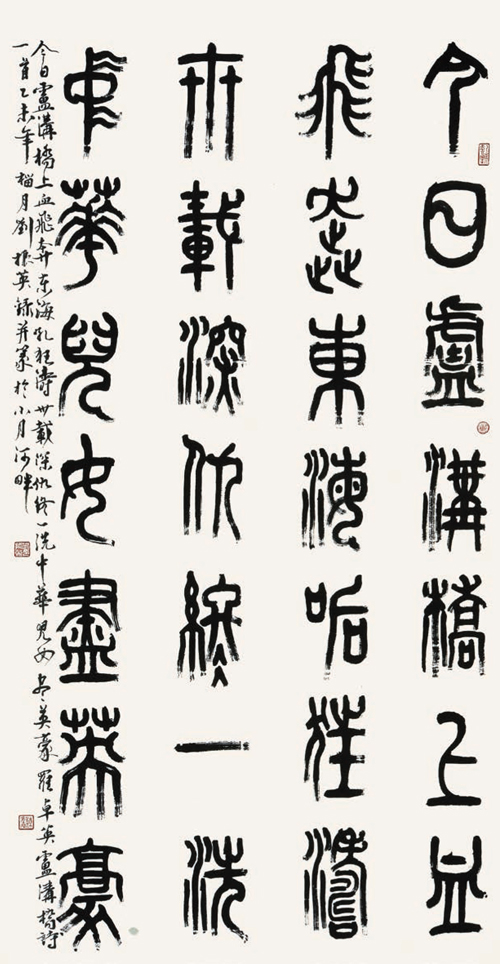 今日盧溝橋上血
飛奔東海吼狂濤
卅載深仇終一洗
中華兒女盡英豪
今日盧溝橋上血飛奔東海吼狂濤卅載深仇終一洗中華兒女尽英豪羅卓英盧溝橋詩
一首乙未年榴月劉振英錄并篆於小月河畔